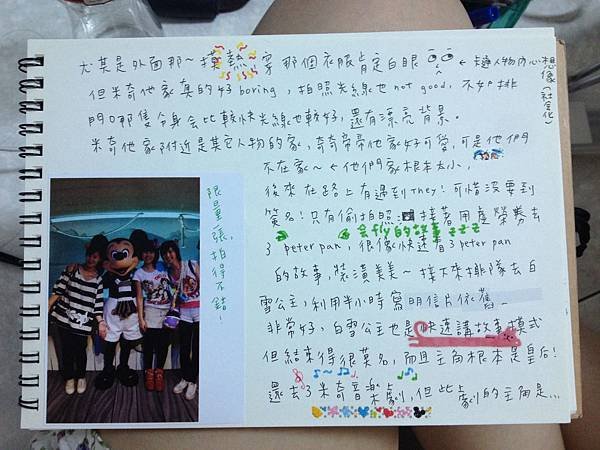 尤其是外面那~摸熱~穿那個衣服肯定白眼 ← 卡通人物內心想像(社会化)
但米奇他家真的好boring,拍照光線也not good,不如排
門口那隻全身会比較快光線也較好,還有漂亮背景。
米奇他家附近是其它人物的家,奇奇帝帝他家好可愛,可是他們
不在家~ ← 他們家根本太小,
後來在路上有遇到They!可惜沒要到
簽名!只有偷拍照 接著用虛榮券去
會fly的故事 zzz
3 peter pan,很像快速看3 peter pan
的故事,裝潢美美~ 接下來排隊去白
雪公主,利用半小時寫明信片依舊~
非常好,白雪公主也是快速講故事模式
但結束得很莫名,而且主角根本是皇后!
還去了米奇音樂劇,但此劇的主角是...
限量一張,拍得不錯!